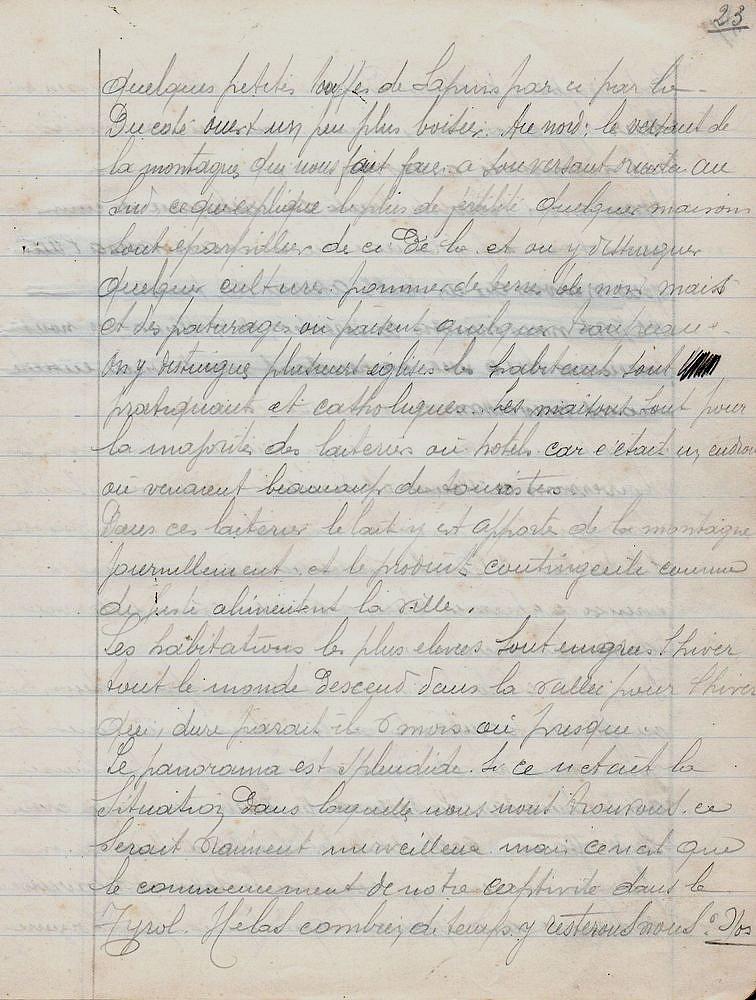 23
quelques petites touffes de Sapins par ci par la.
Du coté ouert un peu plus boisier. Au nord; le versant de
la montagne qui nous fait face a son versant au
Sud ce qui explique le plus de fertilité. quelques maisons
sont éparpillier de ci De la. et on y distingues
quelques cultures. pommes de terres ble noir mais
et des paturages où paisent quelques troupeaux.
On y distingues plusieurs églises les habitants sont
pratiquants et catholiques. Les maisons sont pour
la majorités des laiteries ou hotels car c'etait un endroi
ou venaient beaucoup de touristes
Dans ces laiteries le lait y est apporte de la montagne
journellement et le produit contingenté comme
de juste alimentent la ville.
Les habitations les plus elevées sont l'hiver
tout le monde Descend dans la vallée pour l'hiver
qui dure parait il 8 mois ou presque.
Le panorama est splendide. Si ce n'etait la
Situation Dans laquelle nous nous trouvons. ce
Serait vraiment merveilleux mais ce n'est que
le commencement de notre captivite dans le
Tyrol. Hélas combien de temps y resterons nous? Nos